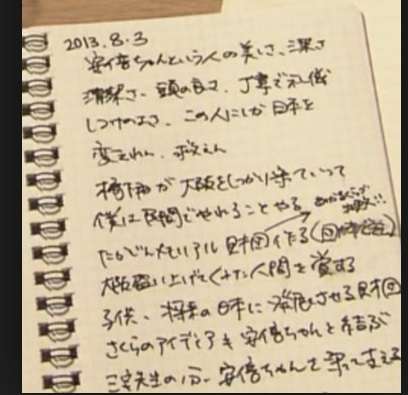 2013.8.3
安倍ちゃんという人の美しさ、深さ
清潔さ、頭の良さ、丁寧で礼儀
しつけのよさ、この人にしか日本を
変えれん、救えん
橋下が大阪をしっかり守っていって
僕は民間でやれることやる
たかじんメモリアル財団作る
大阪盛り上げてくれた人間を賞する
子供、将来の日本に発展させる財団
さくらのアイデアも安倍ちゃんと結ぶ
三宅先生の分、安倍ちゃんを